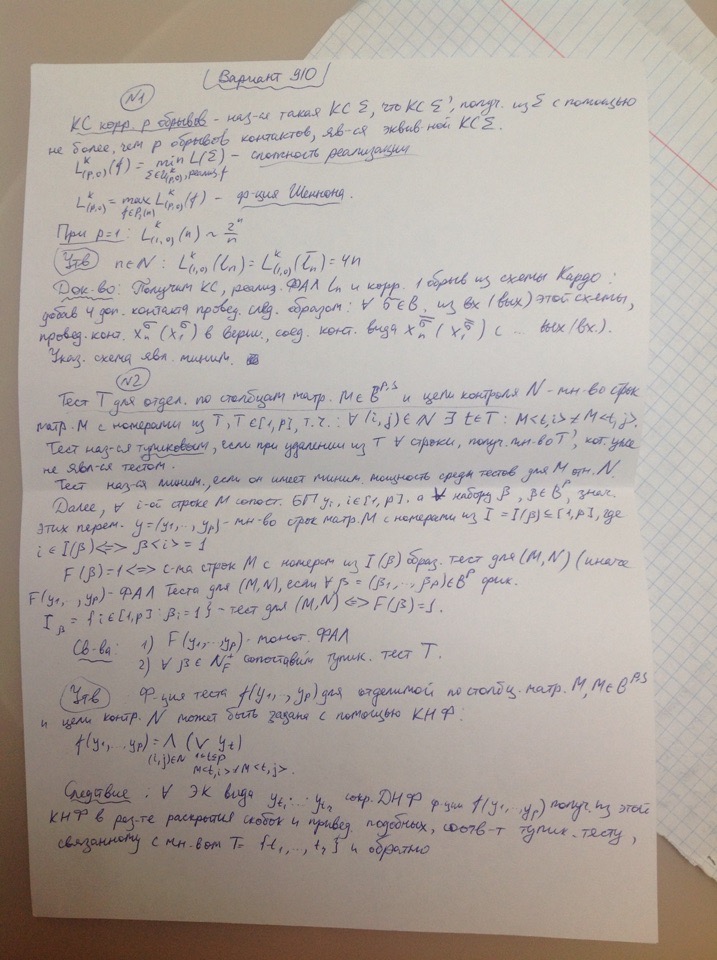 Вариант 910
№1
КС корр. p обрывов - наз-ся такая КС Σ, что КС Σ', получ. из Σ с помощью
не более, чем p обрывов контактов, яв-ся эквив-ной КС Σ.
L^K_(p,0)(f) = min L(Σ) - сложность реализации
Σ∈U^K_(p,0), реализ f
L^K_(p,0) = max L^K_(p,0)(f) - ф-ция Шеннона.
f∈P₂(n)
При p=1: L^K_(1,0)(n) ~ 2ⁿ/n
Утв n∈N: L^K_(1,0)(ln) = L^K_(1,0)(l̄n) = 4n
Док-во: Получим КС, реализ. ФАЛ ln и корр. 1 обрыв из схемы Кардо:
добав 4 доп. контакта провед. след. образом: ∀ σ∈B, из вх (вых) этой схемы,
провед. конт. x^σ_n (x^σ_1) в верш., соед. конт. вида x^σ̄_n (x^σ̄_1) с ... вых (вх.).
Указ. схема явл. миним.
№2
Тест T для отдел. по столбцам матр. M∈B^p,s и цели контроля N - мн-во строк
матр. M с номерами из T, T⊆[1,p], т.ч.: ∀(i,j)∈N ∃ t∈T: M<t,i> ≠ M<t,j>.
Тест наз-ся тупиковым, если при удалении из T ∀ строки, получ. мн-во T', кот. уже
не явл-ся тестом.
Тест наз-ся миним., если он имеет миним. мощность среди тестов для M отн. N.
Далее, ∀ i-ой строке M сопост. БП yi, i∈[1,p], а ∀ набору β, β∈B^p, знач.
этих перем. y=(y₁,..,yp) - мн-во строк матр. M с номерами из I = I(β)⊆[1,p], где
i∈I(β) <=> β<i> = 1
F(β)=1 <=> с-ма строк M с номером из I(β) образ. тест для (M,N) (иначе
F(y₁,..,yp) - ФАЛ Теста для (M,N), если ∀ β = (β₁,..,βp)∈B^p фик.
I_β = {i∈[1,p]: βi=1} - тест для (M,N) <=> F(β)=1.
Св-ва: 1) F(y₁,..,yp) - монот. ФАЛ
2) ∀ β∈N⁺_F сопоставим тупик. тест T.
Утв Ф-ция теста f(y₁,..,yp) для отделимой по столбц. матр. M, M∈B^p,s
и цели контр. N может быть задана с помощью КНФ:
f(y₁,..,yp) = ∧ (∨ yt)
(i,j)∈N 1≤t≤p
M<t,i>≠M<t,j>.
Следствие: ∀ ЭК вида yt₁·...·yt₂ сокр. ДНФ ф-ции f(y₁,..,yp) получ. из этой
КНФ в рез-те раскрытия скобок и привед. подобных, соотв-т тупик. тесту,
связанному с мн-вом T = {t₁,..,t₂} и обратно